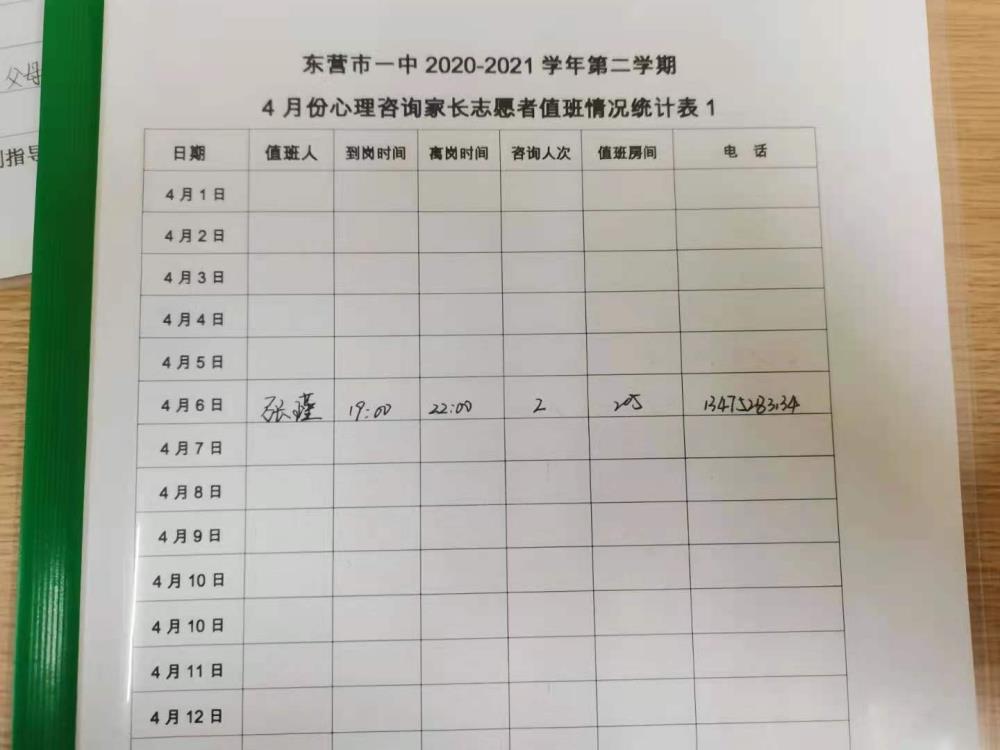 父母
指导
东营市一中 2020-2021 学年第二学期
4 月份心理咨询家长志愿者值班情况统计表 1
日期 值班人 到岗时间 离岗时间 咨询人次 值班房间 电 话
4 月 1 日
4 月 2 日
4 月 3 日
4 月 4 日
4 月 5 日
4 月 6 日 张瑾 19:00 22:00 2 205 13475283134
4 月 7 日
4 月 8 日
4 月 9 日
4 月 10 日
4 月 10 日
4 月 11 日
4 月 12 日